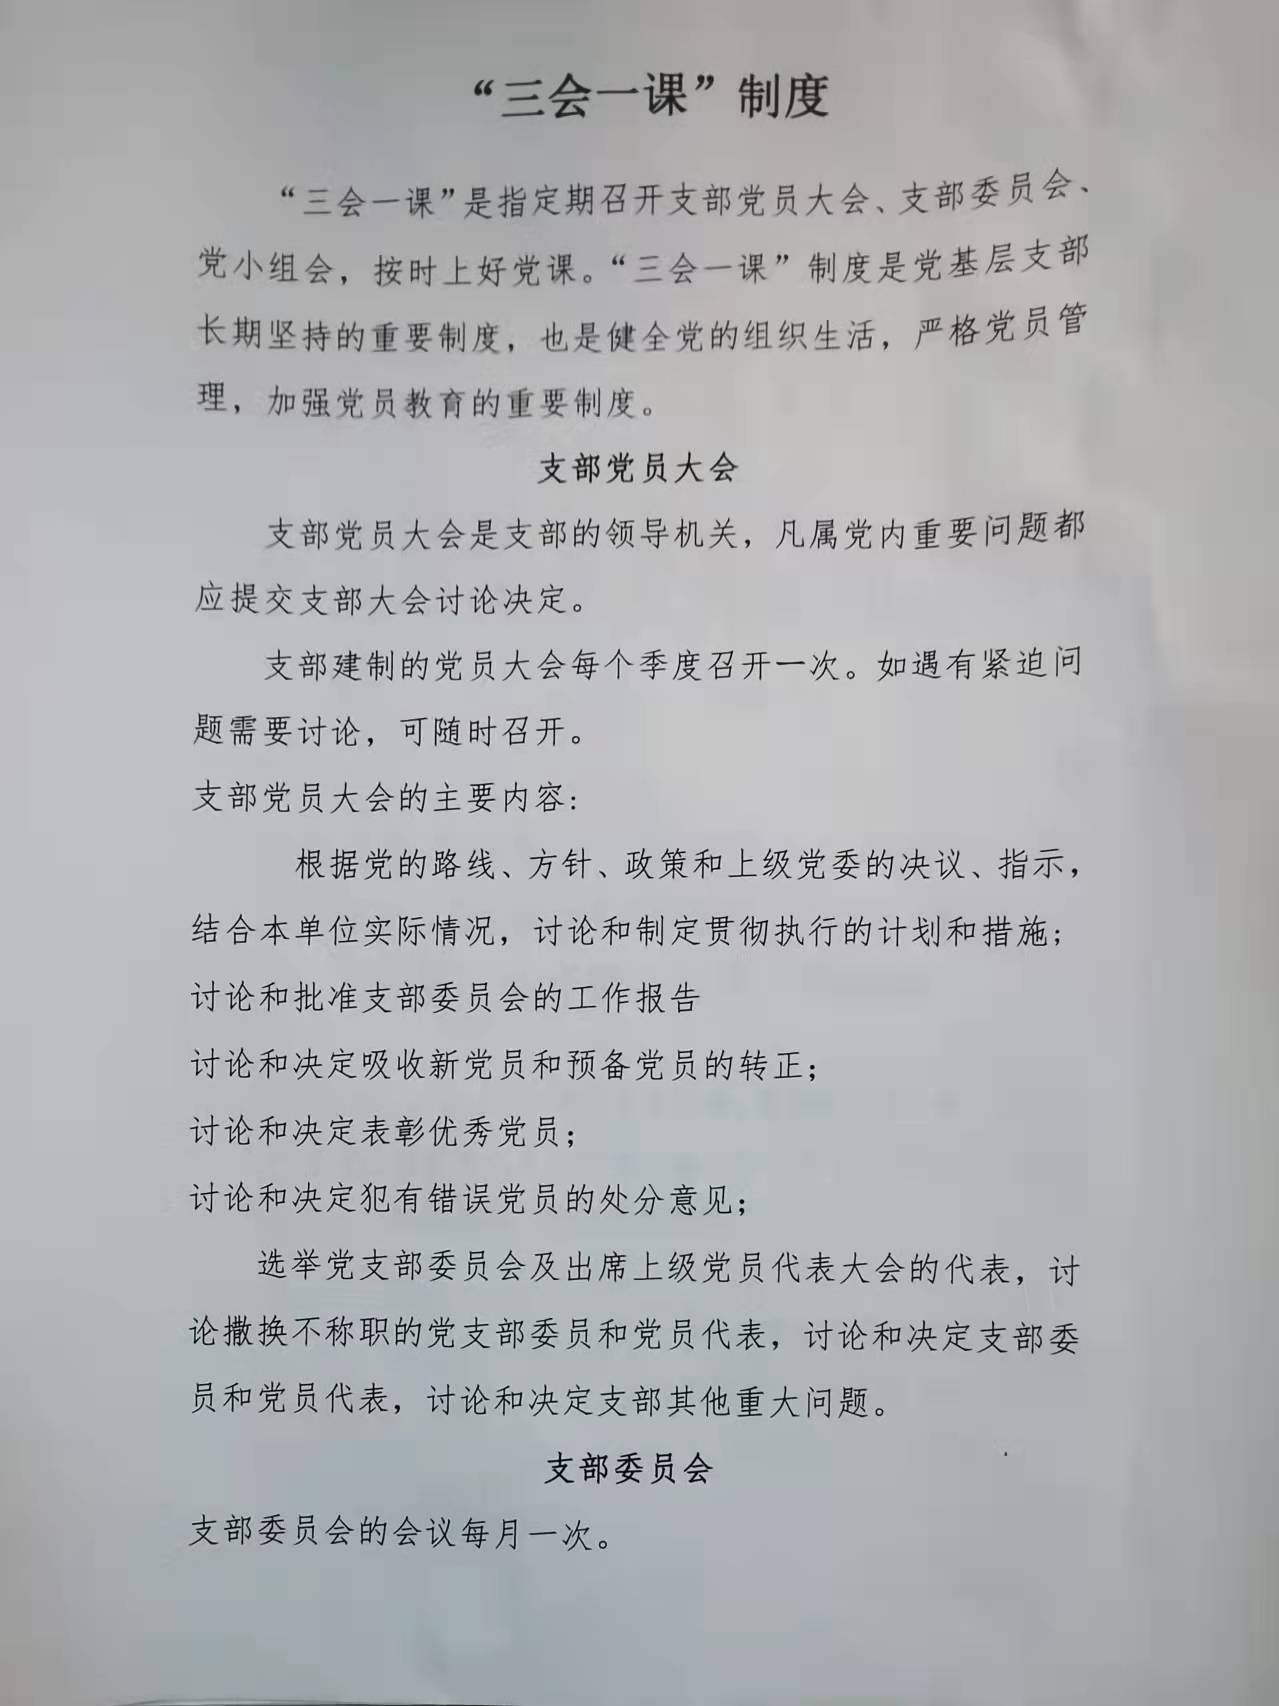 “三会一课”制度
“三会一课”是指定期召开支部党员大会、支部委员会、
党小组会，按时上好党课。“三会一课”制度是党基层支部
长期坚持的重要制度，也是健全党的组织生活，严格党员管
理，加强党员教育的重要制度。
支部党员大会
支部党员大会是支部的领导机关，凡属党内重要问题都
应提交支部大会讨论决定。
支部建制的党员大会每个季度召开一次。如遇有紧迫问
题需要讨论，可随时召开。
支部党员大会的主要内容：
根据党的路线、方针、政策和上级党委的决议、指示，
结合本单位实际情况，讨论和制定贯彻执行的计划和措施；
讨论和批准支部委员会的工作报告
讨论和决定吸收新党员和预备党员的转正；
讨论和决定表彰优秀党员；
讨论和决定犯有错误党员的处分意见；
选举党支部委员会及出席上级党员代表大会的代表，讨
论撤换不称职的党支部委员和党员代表，讨论和决定支部委
员和党员代表，讨论和决定支部其他重大问题。
支部委员会
支部委员会的会议每月一次。